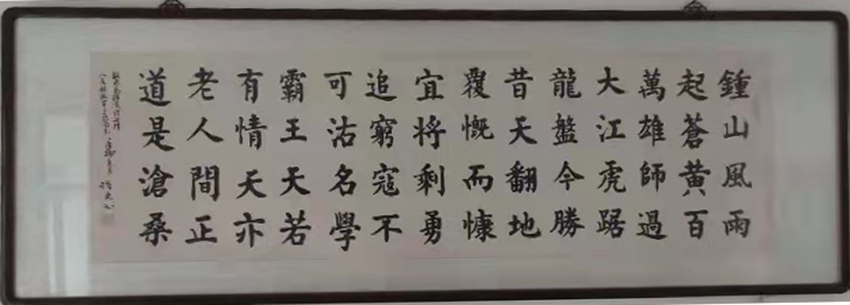 鍾山風雨
起蒼黃百
萬雄師過
大江虎踞
龍盤今勝
昔天翻地
覆慨而慷
宜將剩勇
追窮寇不
可沽名學
霸王天若
有情天亦
老人間正
道是滄桑